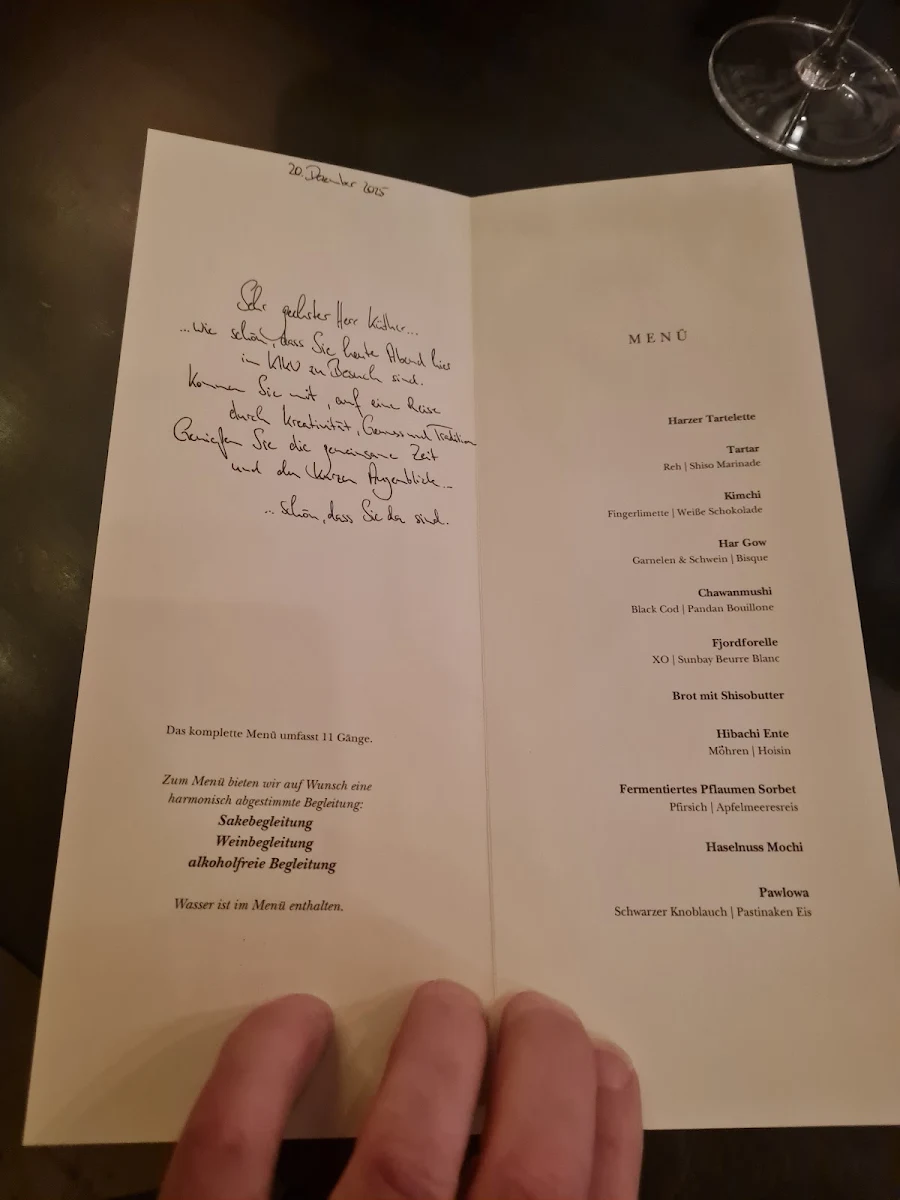 20. Dezember 2025
Sehr geehrter Herr Küther...
...wie schön, dass Sie heute Abend hier
im KIKU zu Besuch sind.
Kommen Sie mit, auf eine Reise
durch Kreativität, Genuss und Tradition
Genießen Sie die gemeinsame Zeit
und den kurzen Augenblick...
... schön, dass Sie da sind.
Das komplette Menü umfasst 11 Gänge.
Zum Menü bieten wir auf Wunsch eine
harmonisch abgestimmte Begleitung:
Sakebegleitung
Weinbegleitung
alkoholfreie Begleitung
Wasser ist im Menü enthalten.
MENÜ
Harzer Tartelette
Tartar
Reh | Shiso Marinade
Kimchi
Fingerlimette | Weiße Schokolade
Har Gow
Garnelen & Schwein | Bisque
Chawanmushi
Black Cod | Pandan Bouillone
Fjordforelle
XO | Sunbay Beurre Blanc
Brot mit Shisobutter
Hibachi Ente
Möhren | Hoisin
Fermentiertes Pflaumen Sorbet
Pfirsich | Apfelmeeresreis
Haselnuss Mochi
Pawlowa
Schwarzer Knoblauch | Pastinaken Eis